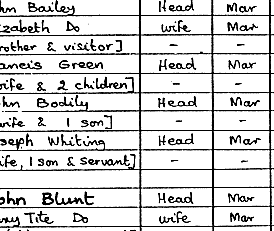 hn Bailey Head Mar
izabeth Do wife Mar
rother & visitor] - -
rancis Green Head Mar
ife & 2 children] - -
ohn Bodily Head Mar
wife & 1 son] - -
oseph Whiting Head Mar
ife, 1 son & servant] - -
ohn Blunt Head Mar
ny Tite Do wife Mar